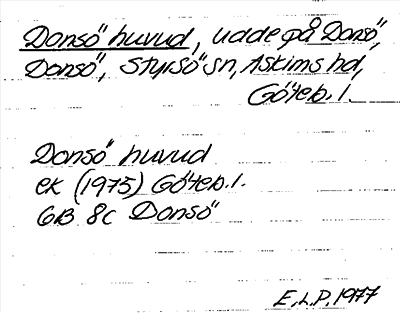 Donsö huvud, udde på Donsö,
Donsö, Styrsö sn, Askims hd,
Göteb. l.
Donsö huvud
ek (1975) Göteb. l.
6B 8c Donsö
E.L.P. 1977